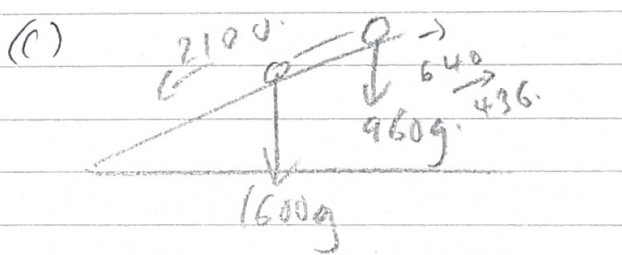 (C)
2100.
640
436.
960g.
1600g